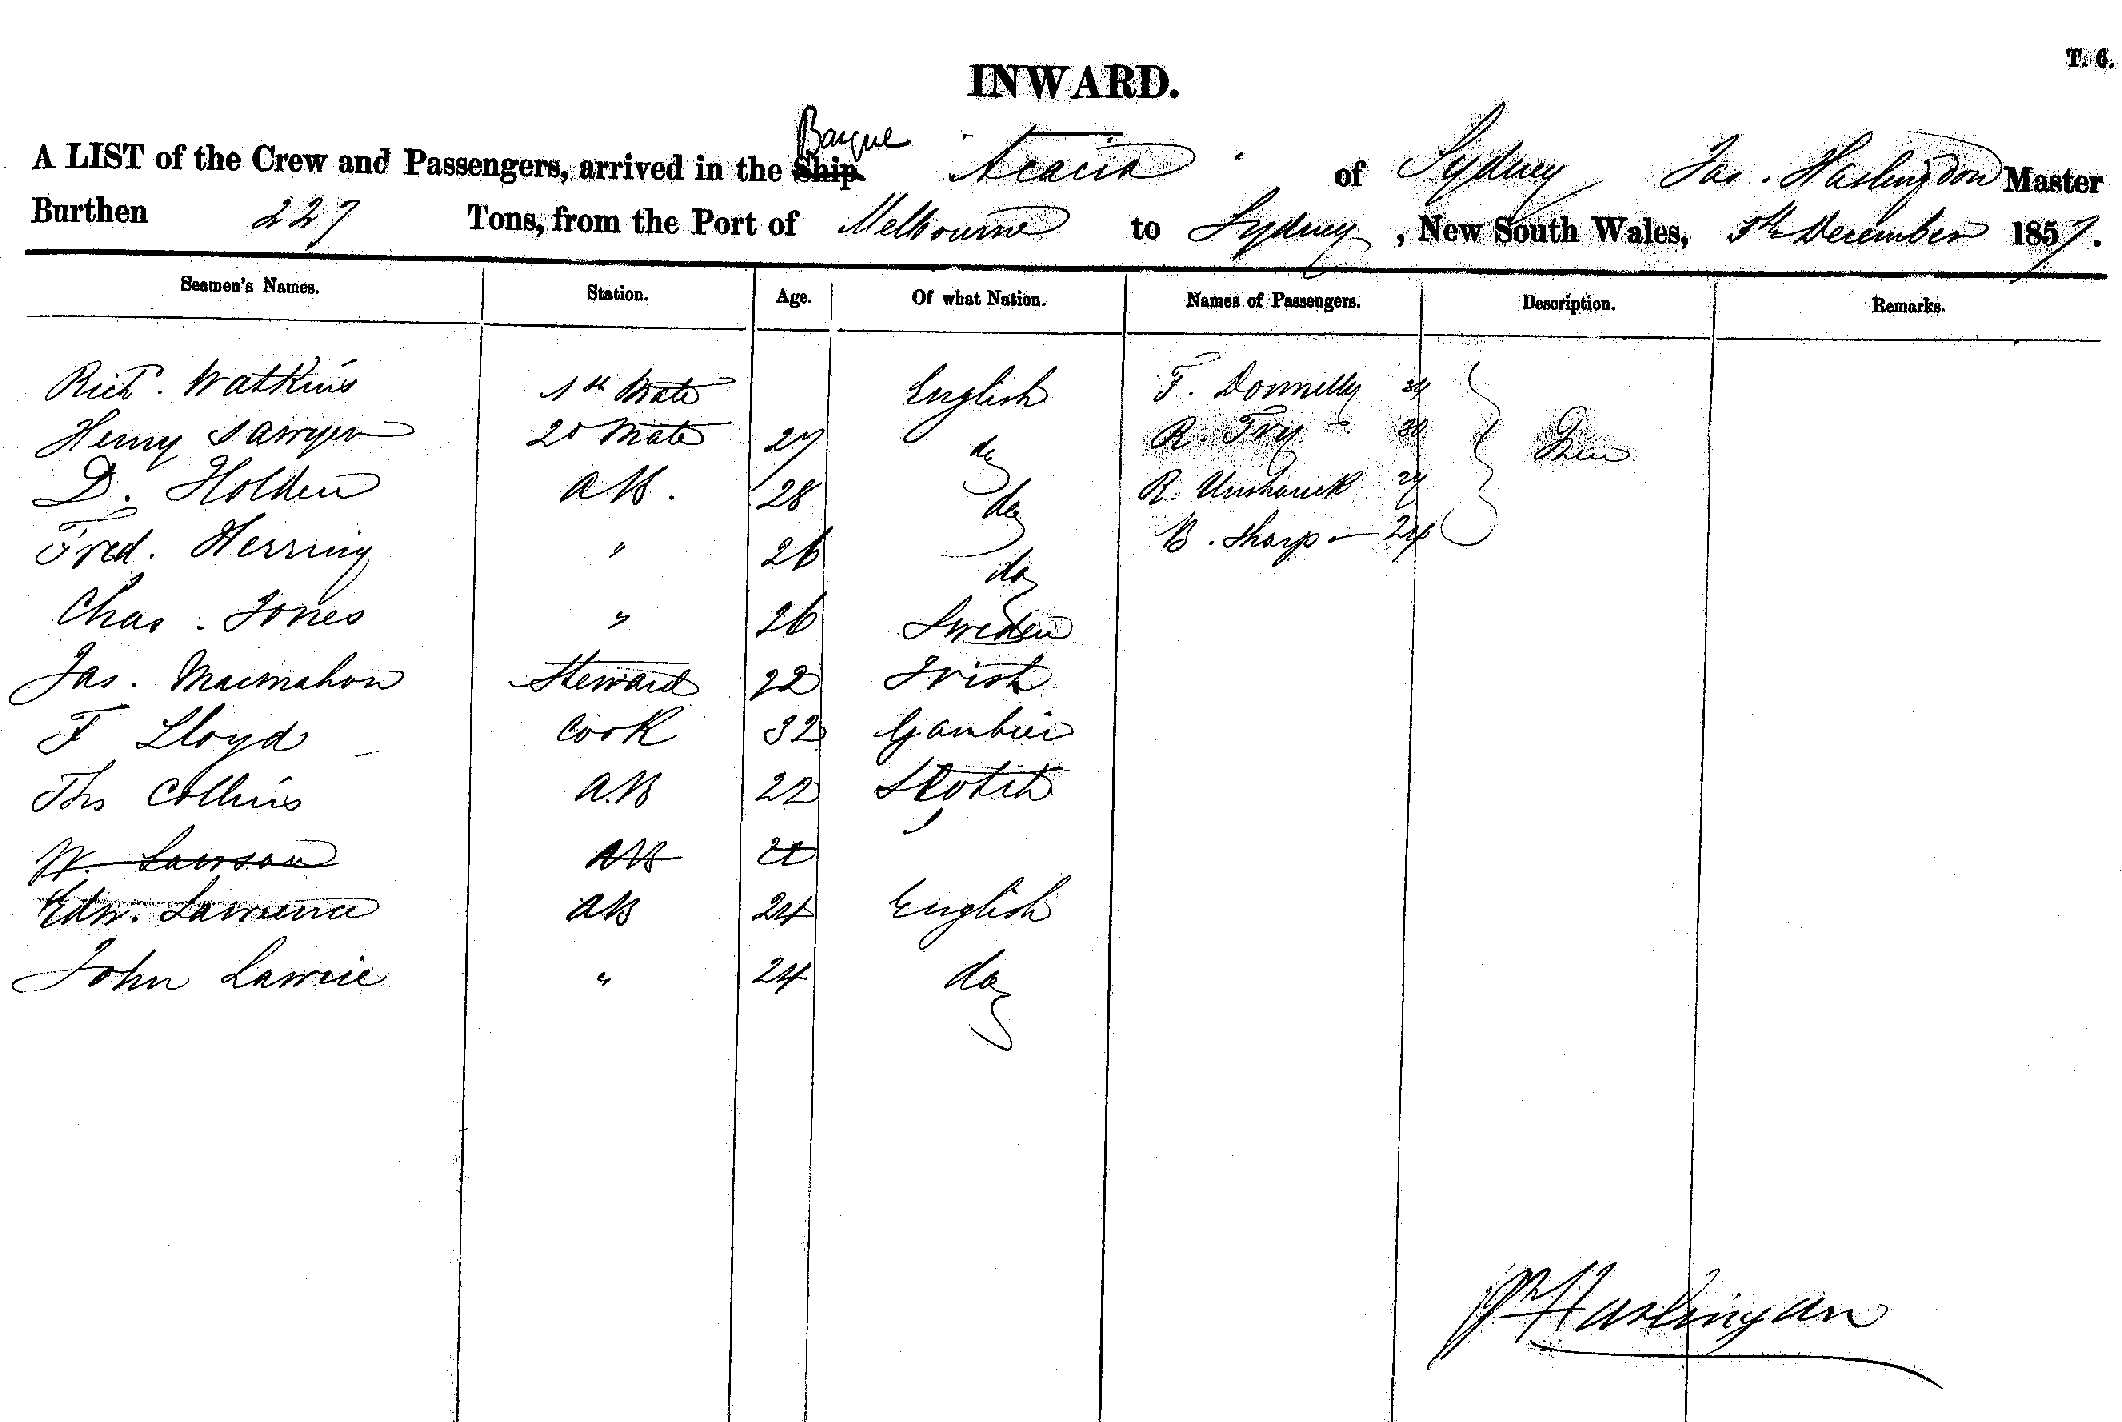 T. 6.
INWARD.
A LIST of the Crew and Passengers, arrived in the Ship Barque Acacia of Sydney Jas. Haslingdon Master
Burthen 227 Tons, from the Port of Melbourne to Sydney, New South Wales, 5th December 1857.
Seamen's Names. Station. Age. Of what Nation. Names of Passengers. Description. Remarks.
Richd. Watkins 1st Mate English F. Donnelly
Henry Sawyer 2d Mate 27 do R. Fry
D. Holden AB. 28 do R
Fred. Herring " 26 do B. Sharp - 24
Chas. Jones " 26 Sweden
Jas. Macmahon Steward 22 Irish
F Lloyd Cook 32 Gambier
Ths Collins AB 22 Scotch
W. Lawson AB
Edw. Lawrence AB 24 English
John Lawrie " 24 do